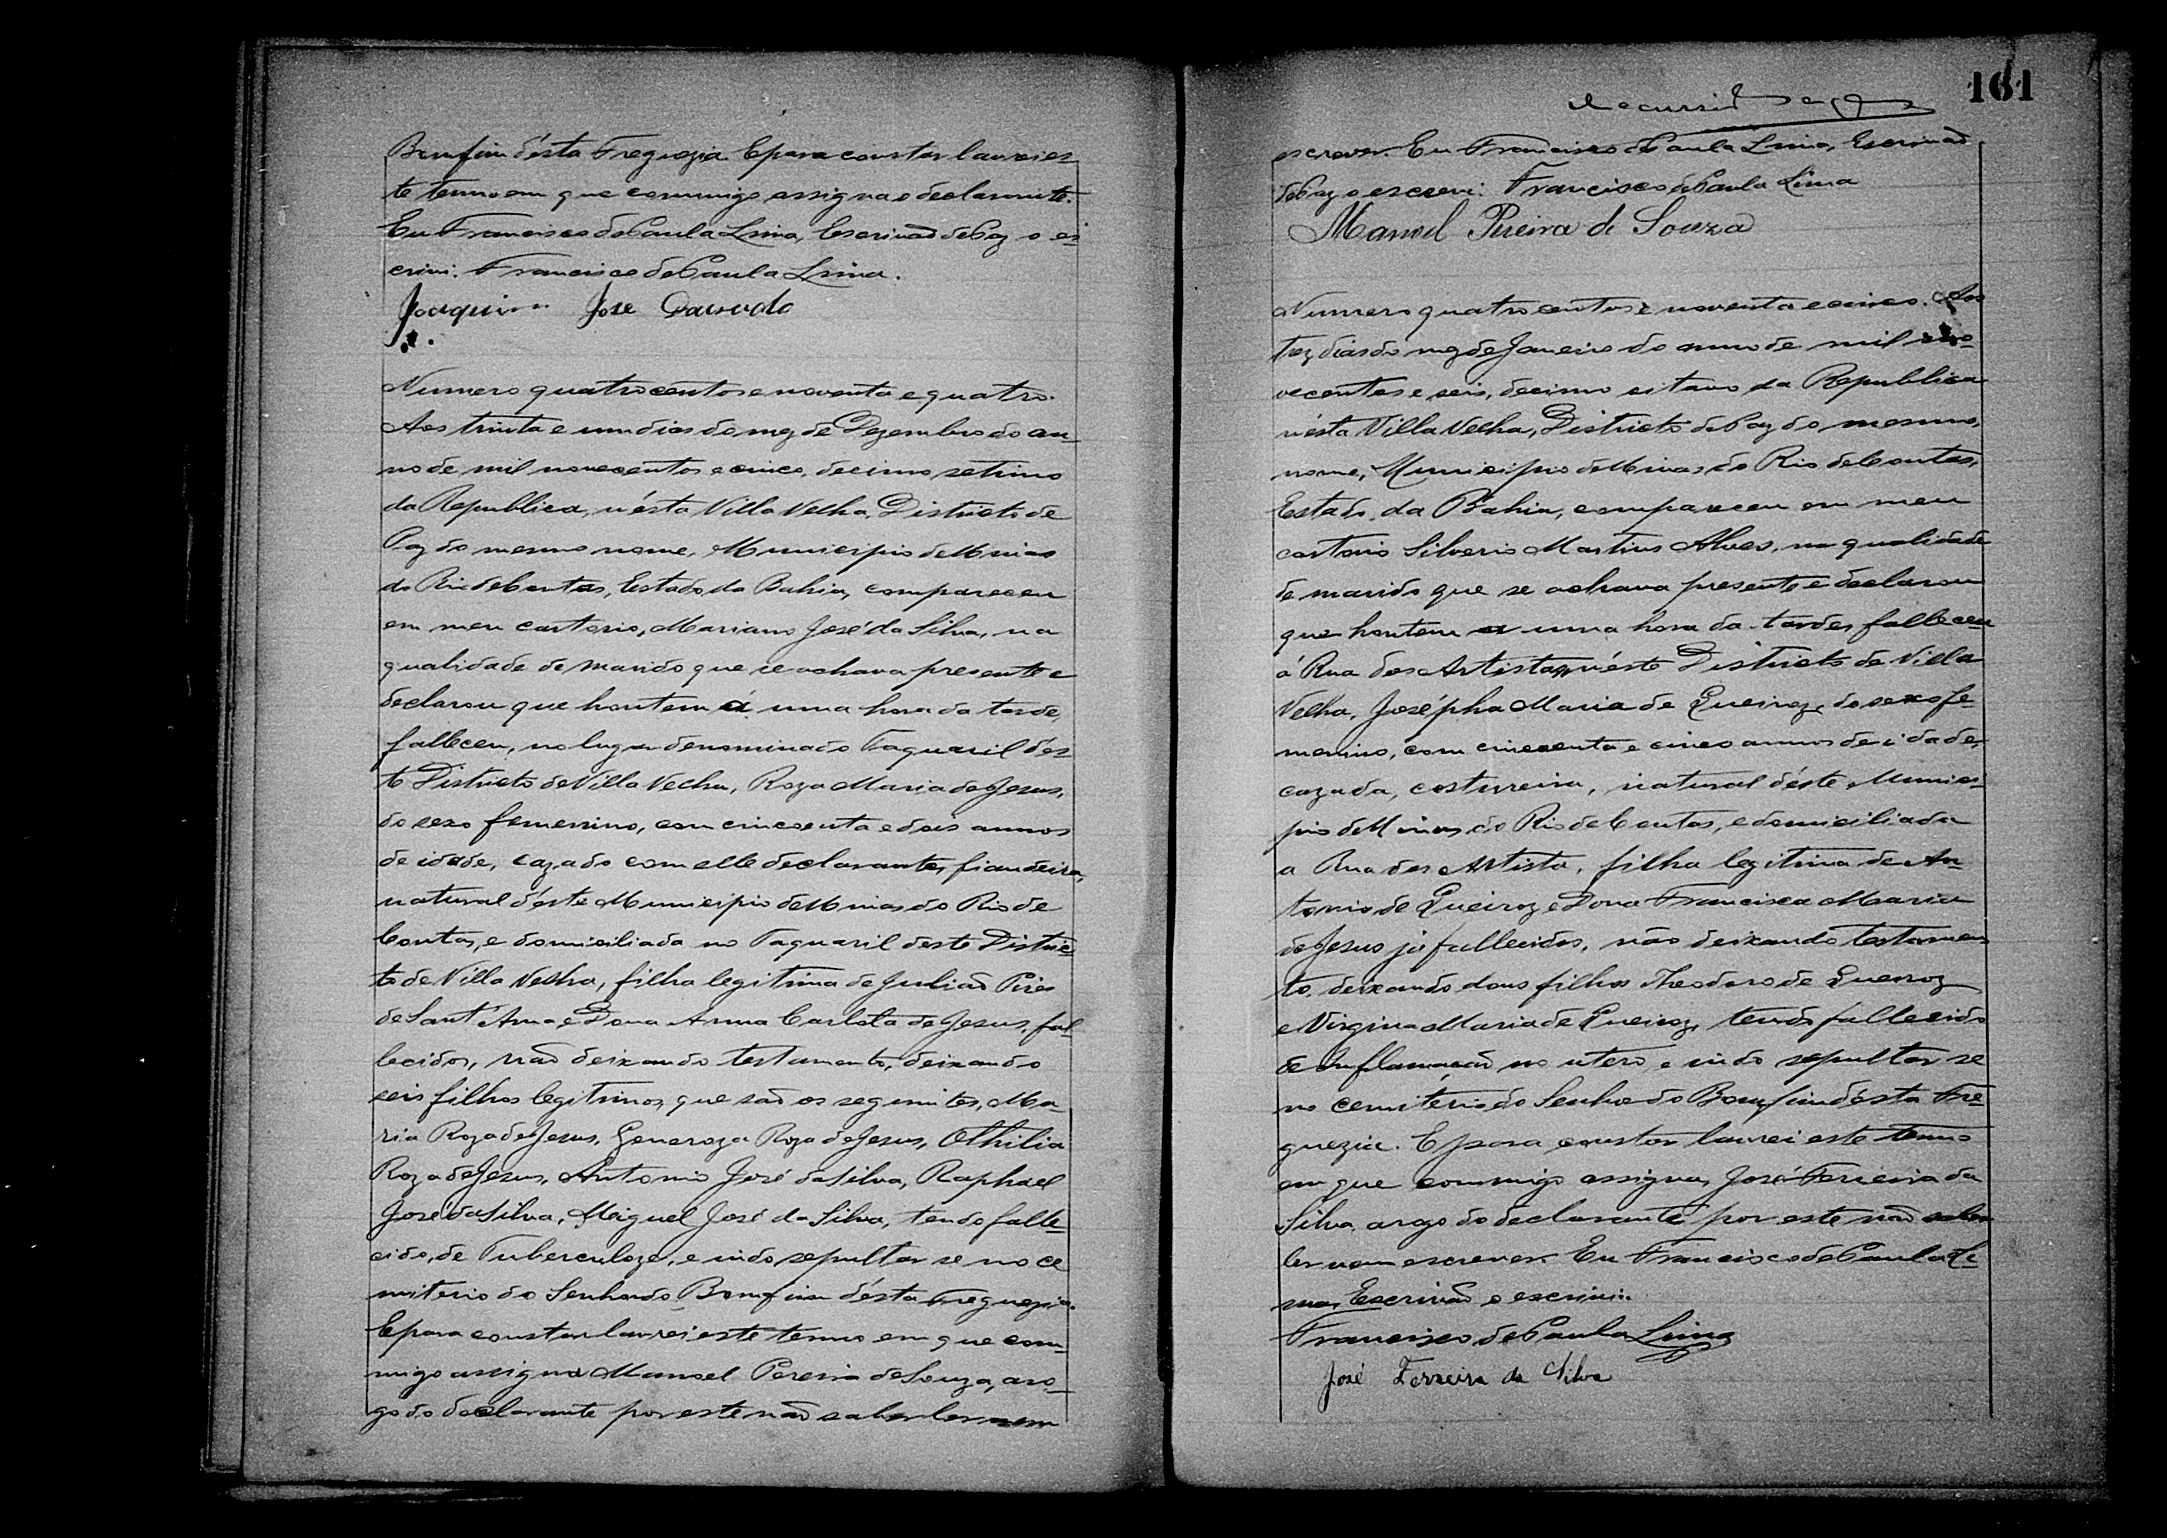 Bomfim d'ésta Freguezia. E para constar lavrei es
te termo em que commigo assigna o declarante.
Eu Francisco de Paula Lima, Escrivaõ de Paz o es
crivi. Francisco de Paula Lima.
Joaquim José
Numero quatrocentos e noventa e quatro.
Aos trinta e um dias do mez de Dezembro do an
no de mil novecentos e cinco, decimo setimo
da Republica, n'ésta Villa Velha, Districto de
Paz do mesmo nome, Municipio de Minas
do Rio de Contas, Estado da Bahia, compareceu
em meu cartorio, Mariano José da Silva, na
qualidade de marido que se achava presente e
declarou que hontem á uma hora da tarde,
falleceu, no lugar denominado Taquaril d'és
te Districto de Villa Velha, Roza Maria de Jesus,
do sexo femenino, com cincoenta e dois annos
de idade, cazado com elle declarante, fiandeira,
natural d'éste Municipio de Minas do Rio de
Contas, e domiciliada no Taquaril deste Distric
to de Villa Velha, filha legitima de Juliaõ Pires
de Sant'Anna e Dona Anna Carlota de Jesus, fal
lecidos, naõ deixando testamento, deixando
seis filhos legitimos, que saõ os seguintes, Ma-
ria Roza de Jesus, Generoza Roza de Jesus, Othilia
Roza de Jesus, Antonio José da Silva, Raphael
José da Silva, Miguel José da Silva, tendo falle-
cido, de Tuberculoze, e indo sepultar se no ce
miterio do Senhor do Bomfim d'ésta Freguezia.
E para constar lavrei este termo em que com-
migo assigna Manoel Pereira de Souza, aro-
go do declarante por este naõ saber ler nem
161
escrever. Eu Francisco de Paula Lima, Escrivaõ
de Paz o escrevi. Francisco de Paula Lima
Manoel Pereira de Souza
Numero quatrocentos e noventa e cinco. Aos
trez dias do mez de Janeiro do anno de mil no-
vecentos e seis, decimo oitavo da Republica
n'ésta Villa Velha, Districto de Paz do mesmo,
nome, Municipio de Minas do Rio de Contas,
Estado da Bahia, compareceu em meu
cartorio Silverio Martins Alves, na qualidade
de marido que se achava presente e declarou
que hontem a uma hora da tarde, falleceu
á Rua dos Artistas, n'éste Districto de Villa
Velha, Josépha Maria de Queiroz, do sexo fe-
menino, com cincoenta e cinco annos de idade,
cazada, costureira, natural d'éste Munici-
pio de Minas do Rio de Contas, e domiciliada
a Rua dos Artista, filha legitima de An-
tonio de Queiroz e Dona Francisca Maria
de Jesus já fallecidos, não deixando testamen
to, deixando dous filhos Theodoro de Queiroz
e Virginia Maria de Queiroz, tendo fallecido
de Inflamaçaõ no utero, e indo sepultar se
no cemitério do Senhor do Bomfim d'ésta Fre-
guezia. E para constar lavrei este termo
em que commigo assigna, José Ferreira da
Silva, arogo do declarante por este naõ saber
ler nem escrever. Eu Francisco de Paula Li-
ma, Escrivaõ o escrivi.
Francisco de Paula Lima
José Ferreira da Silva